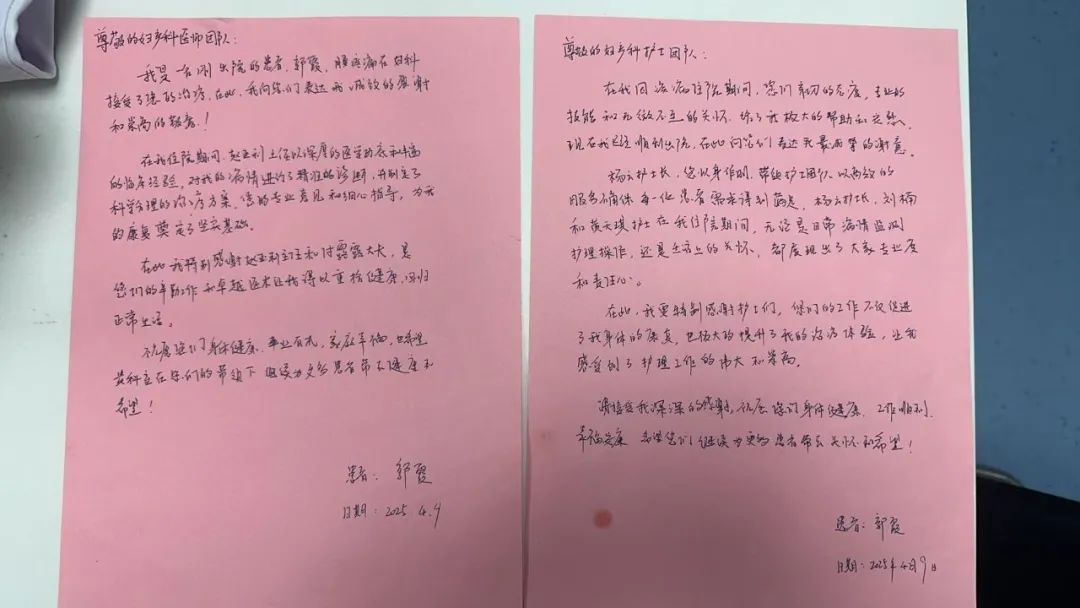 尊敬的妇产科医师团队:
我是一名刚出院的患者,郭霞,腹疼痛在妇科
接受了您的治疗,在此,我向您们表达我诚挚的感谢
和崇高的敬意!
在我住院期间,赵亚利主任以深厚的医学功底和丰富
的临床经验,对我的病情进行了精准的诊断,并制定了
科学合理的治疗方案,您的专业意见和细心指导,为我
的康复奠定了坚实基础。
在此我特别感谢赵亚利主任和付露露大夫,是
您们的辛勤工作和卓越医术让我得以重拾健康,回归
正常生活。
祝愿您们身体健康,事业有成,家庭幸福,也希望
妇科应在您们的带领下继续为更多患者带去健康和
希望!
患者:郭霞
日期:2025.4.9
尊敬的妇产科护士团队:
在我因治病住院期间,您们亲切的态度,专业的
技能和无微不至的关怀,给了我极大的帮助和安慰,
现在我已经顺利出院,在此向您们表达我最诚挚的谢意。
杨云护士长,您以身作则,带领护士团队以高效的
服务确保每一位患者需求得到满足,杨云护士长,刘楠
和黄天琪护士在我住院期间,无论是日常病情监测
护理操作,还是生活上的关怀,都展现出了大家专业度
和责任心。
在此,我要特别感谢护士们,您们的工作不仅促进
了我身体的康复,也极大的提升了我的治疗体验,让我
感受到了护理工作的伟大和崇高。
请接受我深深的感谢,祝愿您们身体健康,工作顺利,
幸福安康 希望您们继续为更多患者带去关怀和希望!
患者:郭霞
日期:2025年4月9日